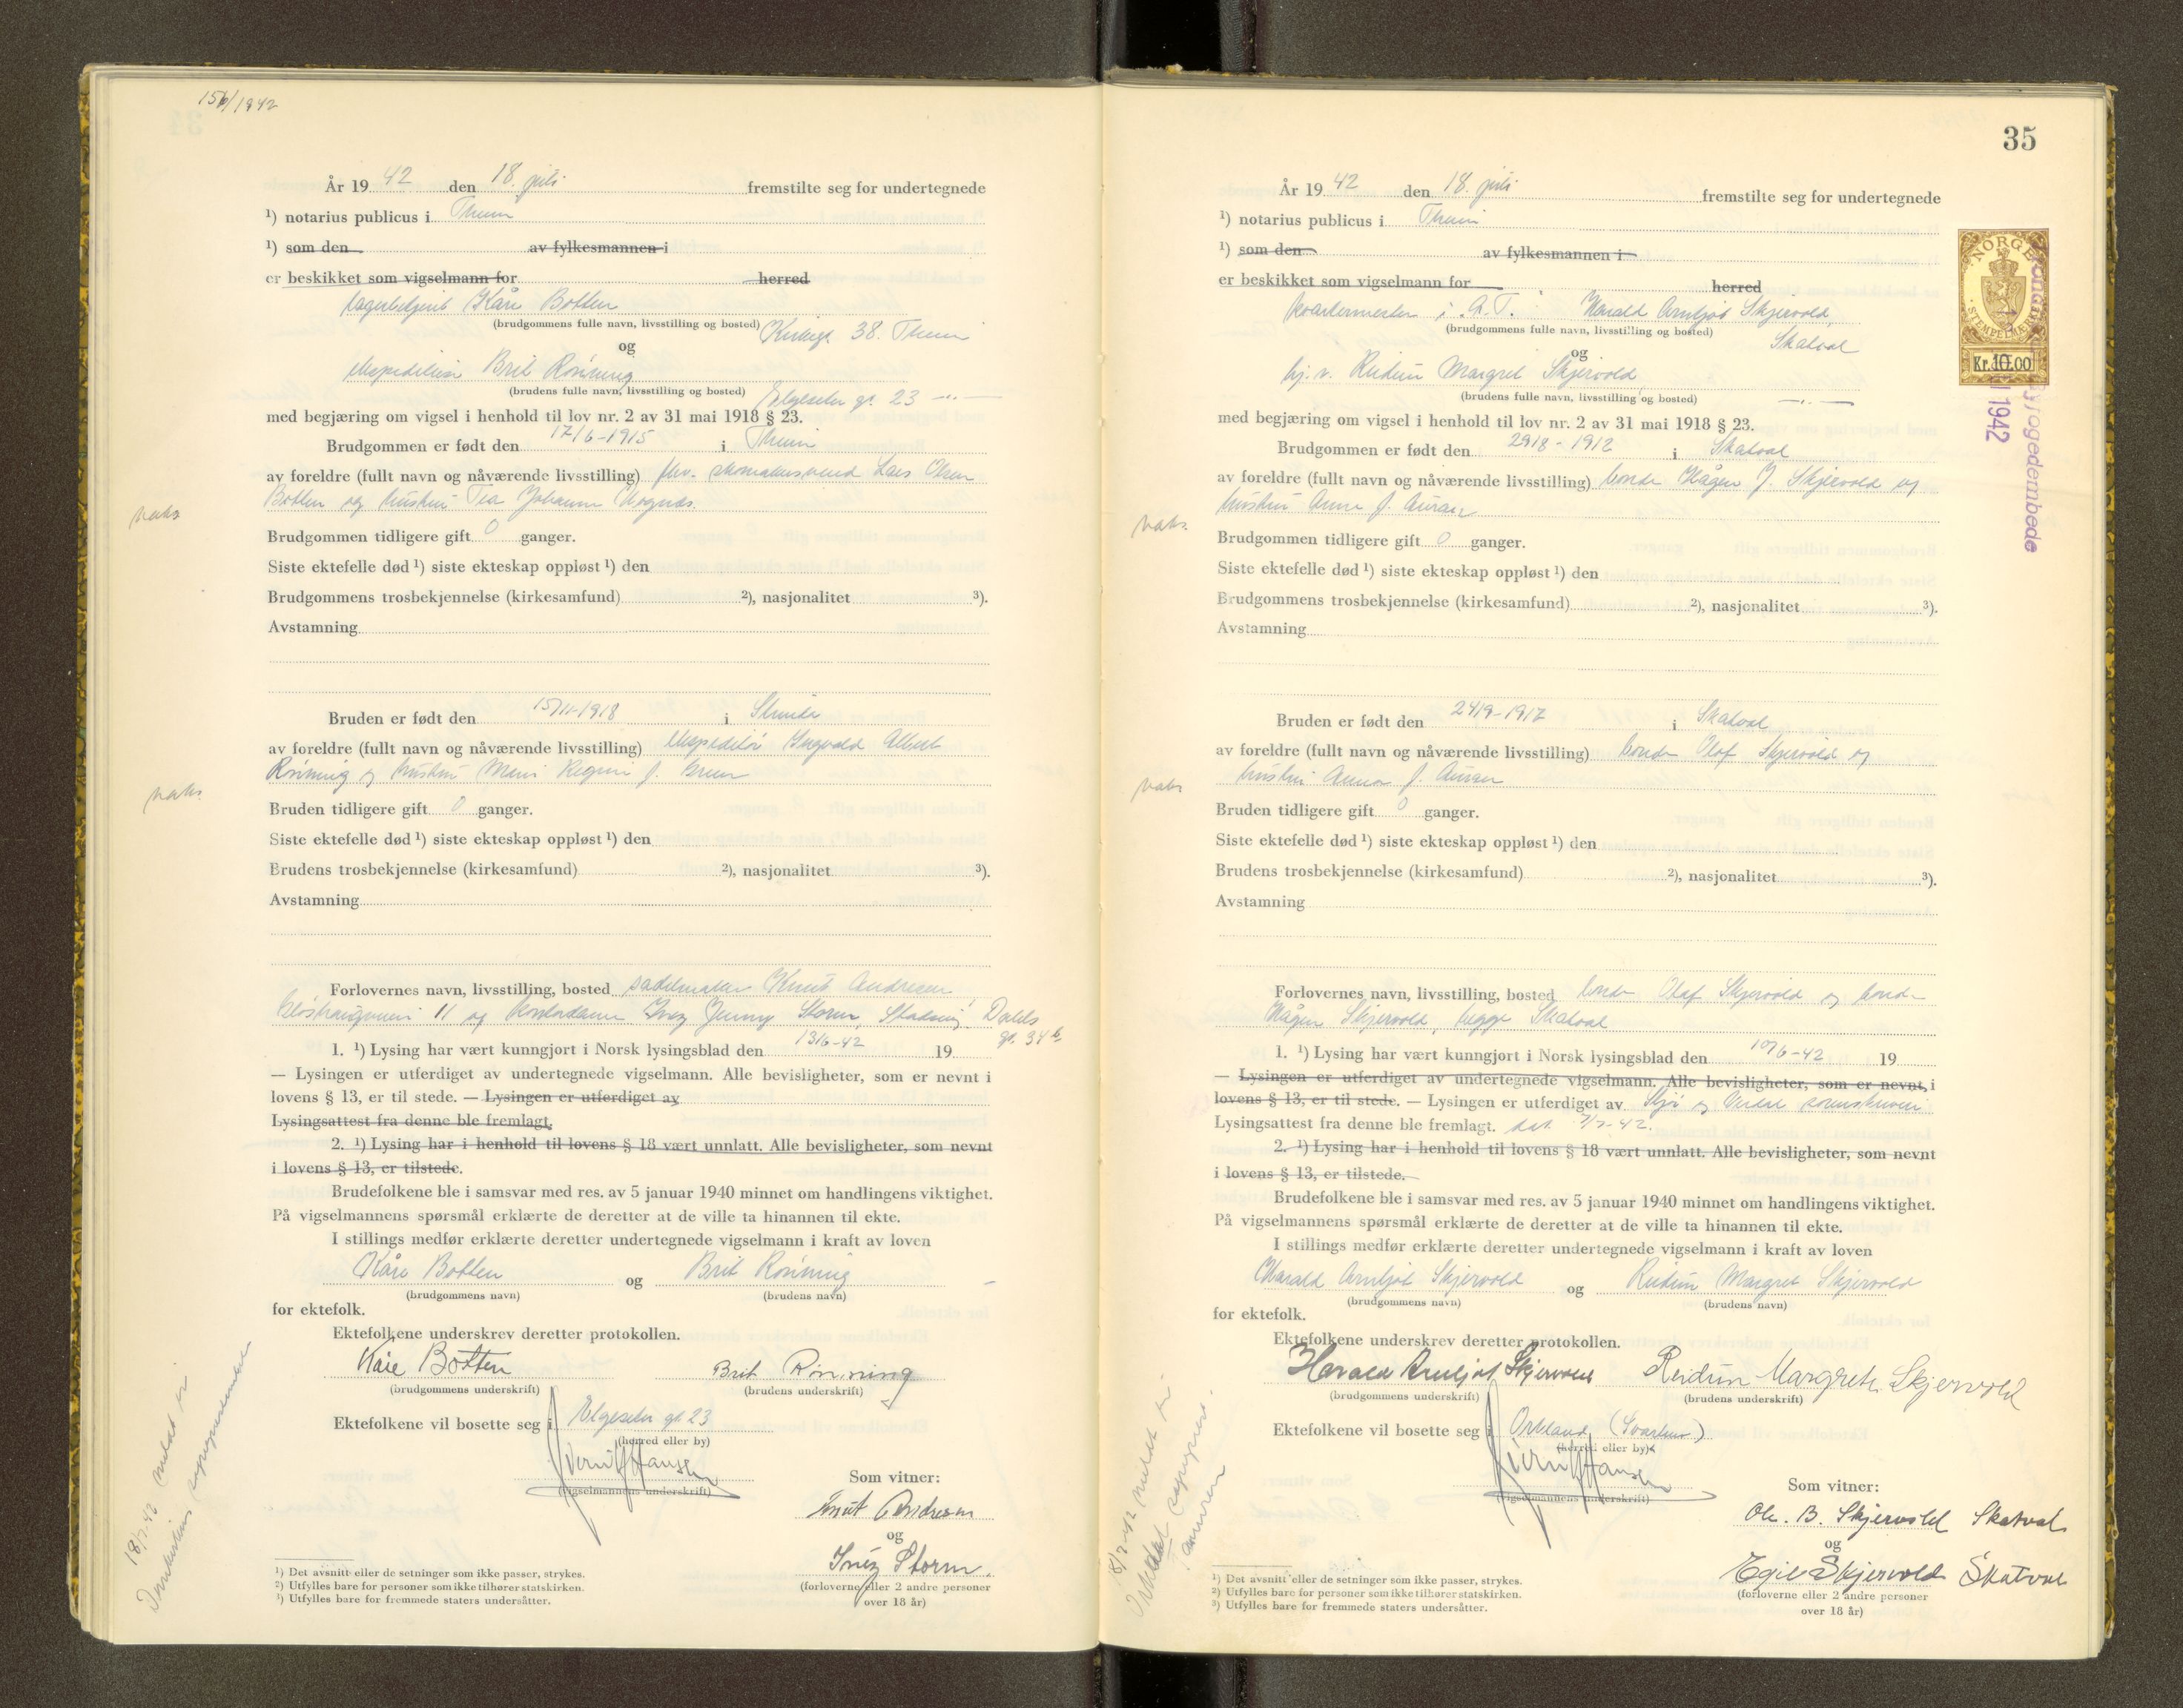 156/1942
År 1942 den 18. juli fremstilte seg for undertegnede
¹) notarius publicus i Thm
¹) som den av fylkesmannen i
er beskikket som vigselmann for herred
lagerbetjent Kåre Botten
(brudgommens fulle navn, livsstilling og bosted) Kirkegt. 38. Thm
og
ekspeditrise Brit Rönning
(brudens fulle navn, livsstilling og bosted) Elgeseter gt. 23 —"—
med begjæring om vigsel i henhold til lov nr. 2 av 31 mai 1918 § 23.
Brudgommen er født den 17/6-1915 i Thm
av foreldre (fullt navn og nåværende livsstilling) fhv. Lars Olsen
Botten og hustru Tea Johanne
vaks.
Brudgommen tidligere gift 0 ganger.
Siste ektefelle død ¹) siste ekteskap oppløst ¹) den
Brudgommens trosbekjennelse (kirkesamfund) ²), nasjonalitet ³).
Avstamning
Bruden er født den 15/11-1918 i Strinda
av foreldre (fullt navn og nåværende livsstilling) ekspeditör Ingvald Albert
Rönning og hustru
vaks.
Bruden tidligere gift 0 ganger.
Siste ektefelle død ¹) siste ekteskap oppløst ¹) den
Brudens trosbekjennelse (kirkesamfund) ²), nasjonalitet ³).
Avstamning
Forlovernes navn, livsstilling, bosted sadelmaker Knut Andresen
11 og kontordame Inez Jenny Storm, Dahls
gt. 34 b
1. ¹) Lysing har vært kunngjort i Norsk lysingsblad den 13/6-42 19
— Lysingen er utferdiget av undertegnede vigselmann. Alle bevisligheter, som er nevnt i
lovens § 13, er til stede. — Lysingen er utferdiget av
Lysingsattest fra denne ble fremlagt.
2. ¹) Lysing har i henhold til lovens § 18 vært unnlatt. Alle bevisligheter, som nevnt
i lovens § 13, er tilstede.
Brudefolkene ble i samsvar med res. av 5 januar 1940 minnet om handlingens viktighet.
På vigselmannens spørsmål erklærte de deretter at de ville ta hinannen til ekte.
I stillings medfør erklærte deretter undertegnede vigselmann i kraft av loven
Kåre Botten og Brit Rönning
(brudgommens navn) (brudens navn)
for ektefolk.
Ektefolkene underskrev deretter protokollen.
Kåre Botten Brit Rönning
(brudgommens underskrift) (brudens underskrift)
Ektefolkene vil bosette seg i Elgeseter gt 23
(herred eller by)
Hansen
(vigselmannens underskrift)
Som vitner:
Knut Andresen
og
Inéz Storm.
(forloverne eller 2 andre personer
over 18 år)
18/7-42 meldt til
Domkirkens sogneprestembede
¹) Det avsnitt eller de setninger som ikke passer, strykes.
²) Utfylles bare for personer som ikke tilhører statskirken.
³) Utfylles bare for fremmede staters undersåtter.
35
År 1942 den 18. juli fremstilte seg for undertegnede
¹) notarius publicus i Thm
¹) som den av fylkesmannen i
er beskikket som vigselmann for herred
kvartermester i A.T. Harald Arnljot Skjervold,
(brudgommens fulle navn, livsstilling og bosted) Skatval
og
hj. v. Reidun Margret Skjervold
(brudens fulle navn, livsstilling og bosted) —"—
med begjæring om vigsel i henhold til lov nr. 2 av 31 mai 1918 § 23.
Brudgommen er født den 29/8-1912 i Skatval
av foreldre (fullt navn og nåværende livsstilling) bonde Hågen J. Skjervold og
hustru Anna f. Auran
vaks.
Brudgommen tidligere gift 0 ganger.
Siste ektefelle død ¹) siste ekteskap oppløst ¹) den
Brudgommens trosbekjennelse (kirkesamfund) ²), nasjonalitet ³).
Avstamning
Bruden er født den 24/9-1917 i Skatval
av foreldre (fullt navn og nåværende livsstilling) bonde Olaf Skjervold og
hustru Anna f. Auran
vaks
Bruden tidligere gift 0 ganger.
Siste ektefelle død ¹) siste ekteskap oppløst ¹) den
Brudens trosbekjennelse (kirkesamfund) ²), nasjonalitet ³).
Avstamning
Forlovernes navn, livsstilling, bosted bonde Olaf Skjervold og bonde
Hågen Skjervold, begge Skatval
1. ¹) Lysing har vært kunngjort i Norsk lysingsblad den 10/6-42 19
— Lysingen er utferdiget av undertegnede vigselmann. Alle bevisligheter, som er nevnt, i
lovens § 13, er til stede. — Lysingen er utferdiget av Stjör og Verdal sorenskriveri
Lysingsattest fra denne ble fremlagt. dat. 7/7-42.
2. ¹) Lysing har i henhold til lovens § 18 vært unnlatt. Alle bevisligheter, som nevnt
i lovens § 13, er tilstede.
Brudefolkene ble i samsvar med res. av 5 januar 1940 minnet om handlingens viktighet.
På vigselmannens spørsmål erklærte de deretter at de ville ta hinannen til ekte.
I stillings medfør erklærte deretter undertegnede vigselmann i kraft av loven
Harald Arnljot Skjervold og Reidun Margret Skjervold
(brudgommens navn) (brudens navn)
for ektefolk.
Ektefolkene underskrev deretter protokollen.
Harald Arnljot Skjervold Reidun Margrete Skjervold
(brudgommens underskrift) (brudens underskrift)
Ektefolkene vil bosette seg i Orkland (Svorkmo)
(herred eller by)
Hansen
(vigselmannens underskrift)
Som vitner:
Ole. B. Skjervold Skatval
og
Egil Skjervold Skatval
(forloverne eller 2 andre personer
over 18 år)
18/7-42 meldt til
¹) Det avsnitt eller de setninger som ikke passer, strykes.
²) Utfylles bare for personer som ikke tilhører statskirken.
³) Utfylles bare for fremmede staters undersåtter.
NORGE
STEMPELMERKE
Kr. 10.00
1942